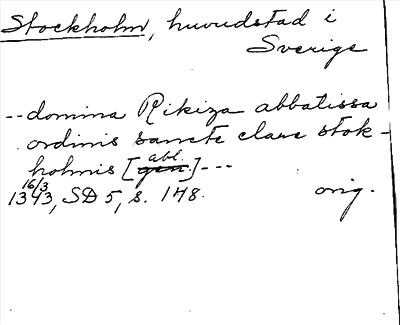 Stockholm, huvudstad i
Sverige
-- domina Rikiza abbatissa
ordinis sancte clare stok-
holmis [gen.] ---
abl.
16/3
1343, SD 5, s. 148.
orig.